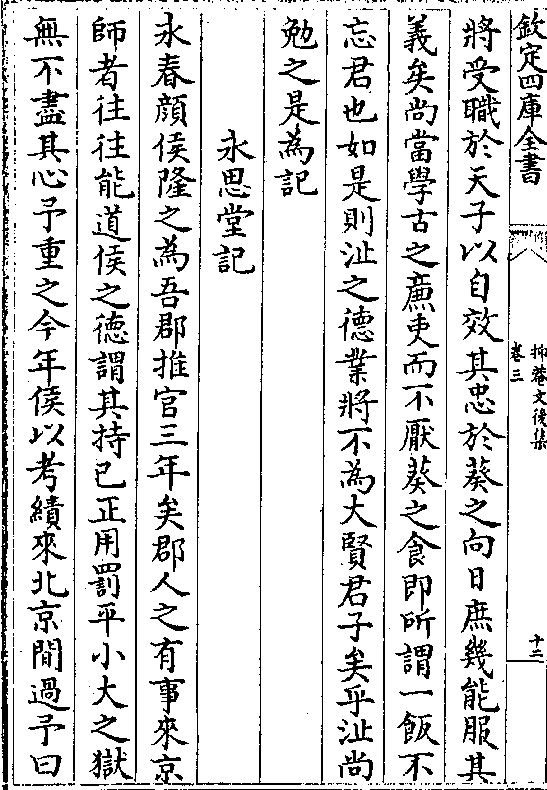 欽定四庫全書
抑菴文後集
卷三
十二
將受職於天子以自效其忠於葵之向日庶幾能服其
義矣尚當學古之亷吏而不厭葵之食即所謂一飯不
忘君也如是則沚之德業將不為大賢君子矣乎沚尚
勉之是為記
永思堂記
永春顔侯隆之為吾郡推官三年矣郡人之有事來京
師者往往能道侯之德謂其持已正用罰平小大之獄
無不盡其心予重之今年侯以考績來北京間過予曰